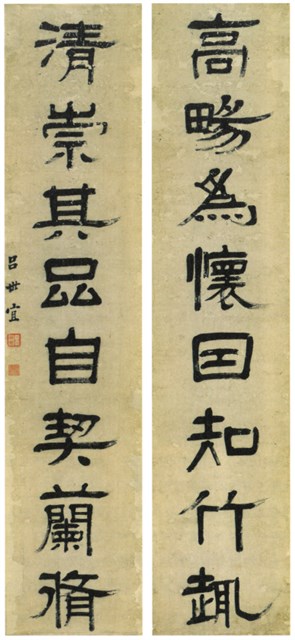 高暢為懷因知竹趣
清崇其品自契蘭脩
呂世宜